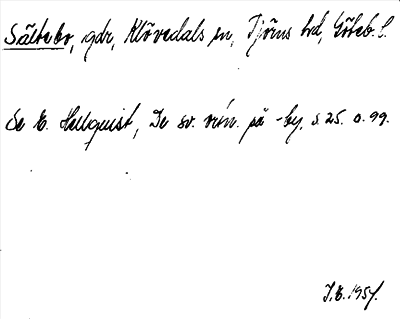 Sältebo, gdr, Klövedals sn, Tjörns hd, Göteb. l.
Se E. Hellquist, De sv. ortn. på -by, s. 25. o. 99.
J.E. 1957.